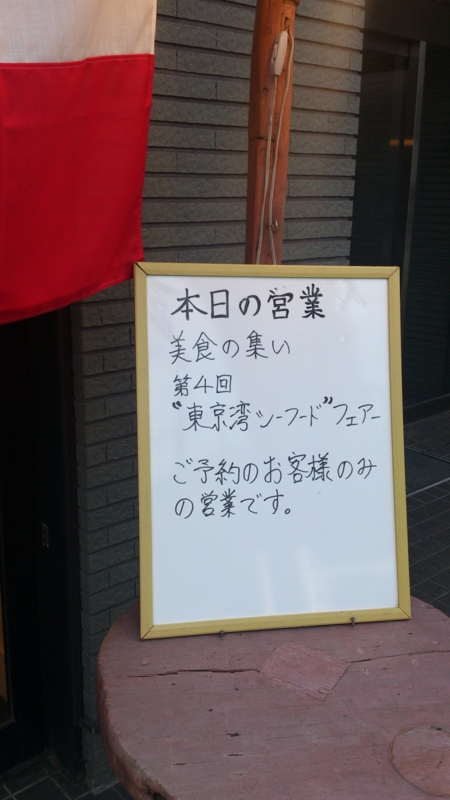 本日の営業
美食の集い
第4回
“東京湾シーフード”フェアー
ご予約のお客様のみ
の営業です。